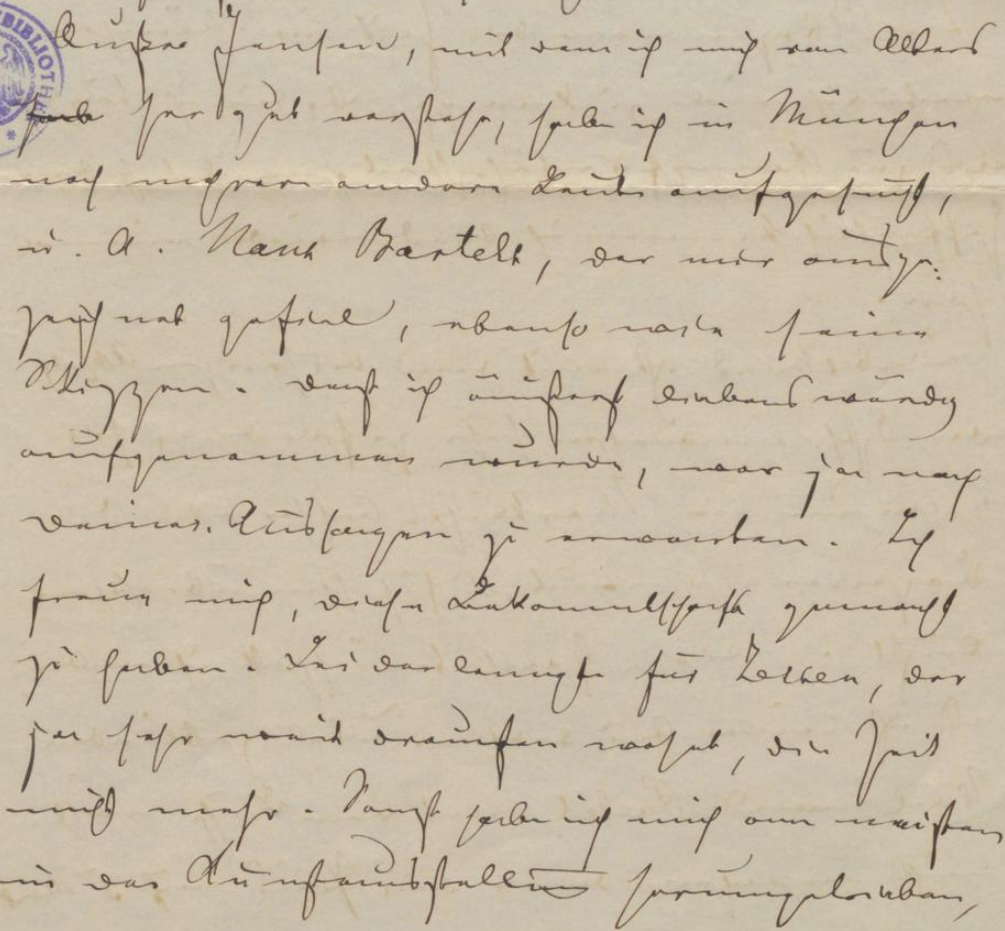 BIBLIOTHE
Außer Jensen, mit dem ich mich von Alters
her gut verstehe, habe ich in München
noch mehrere andere Leute aufgesucht,
u. A. Hans Bartels, der mir ausge-
zeichnet gefiel, ebenso wie seine
Skizzen. Dass ich äußerst liebenswürdig
aufgenommen wurde, war ja nach
Deinen Aussagen zu erwarten. Ich
freue mich, diese Bekanntschaft gemacht
zu haben. Leider langte für, der
ja sehr weit draußen wohnt, die Zeit
nicht mehr. Sonst habe ich mich am meisten
in der Kunstausstellung herumgetrieben,